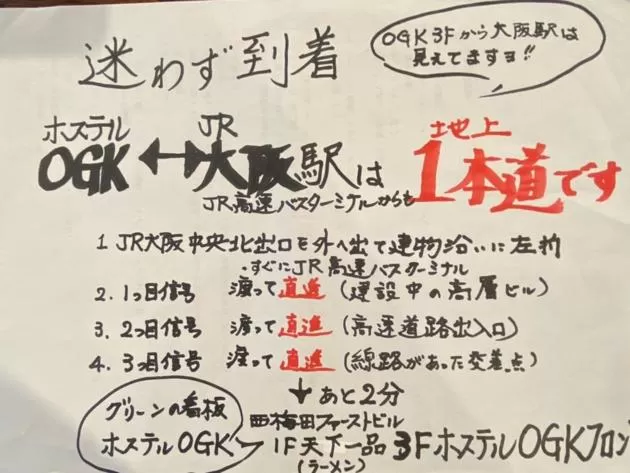 迷わず到着
OGK3Fから大阪駅は
見えてますヨ!!
ホステル JR 地上
OGK↔大阪駅は1本道です
JR高速バスターミナルからも
1 JR大阪中央北出口を外へ出て建物沿いに左折
・すぐにJR高速バスターミナル
2. 1つ目信号 渡って直進(建設中の高層ビル)
3. 2つ目信号 渡って直進(高速道路出入口)
4. 3つ目信号 渡って直進(線路があった交差点)
↓あと2分
グリーンの看板
ホステルOGK
西梅田ファーストビル
1F天下一品 3FホステルOGKフロン
(ラーメン)